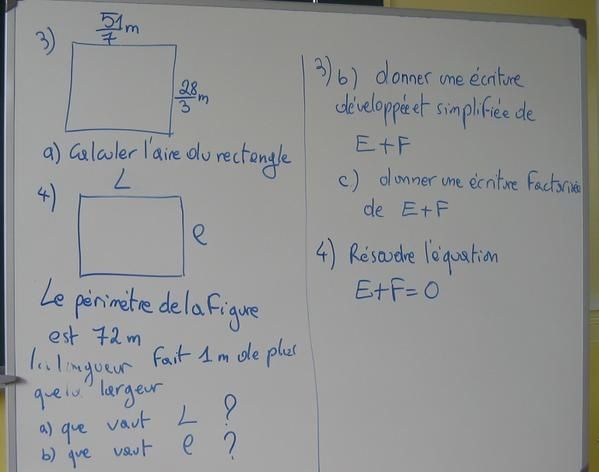 3) 51/7 m
28/3 m
a) Calculer l'aire du rectangle
4) L
e
Le périmètre de la figure
est 72 m
La longueur fait 1 m de plus
que la largeur
a) que vaut L ?
b) que vaut e ?
3) b) donner une écriture
développée et simplifiée de
E+F
c) donner une écriture factorisée
de E+F
4) Résoudre l'équation
E+F=0